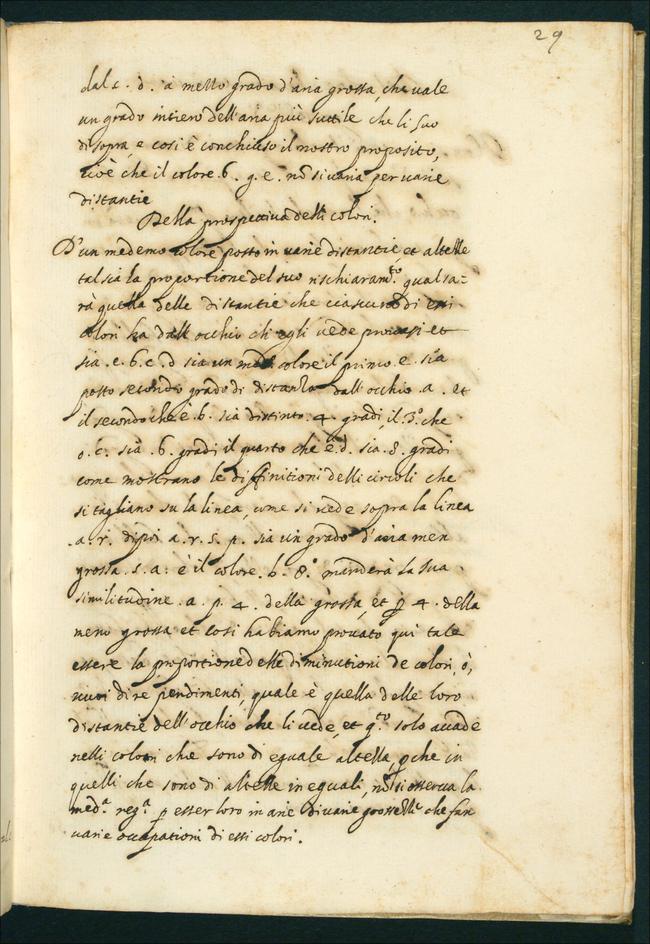 29
dal c. d. à mezzo grado d'aria grossa, che uale
un grado intiero dell'aria più suttile che li suo
di sopra, e così è conchiuso il nostro proposito,
cioè che il colore. b. g. e. nō si uaria per uarie
distantie
Della prospectiua delli colori.
D'un medemo colore posto in uarie distantie, et altezze
tal sia la proportione del suo rischiaram.to qual sa-
rà quella delle distantie che ciascuno di essi
colori ha dall'occhio ch egli uede prouasi et
sia. e. b. c. d sia un med.o colore il primo. e. sia
posto secondo grado di distanza dall'occhio. a. et
il secondo che è. b. sia distinto. 4. gradi il. 3.o che
c. sia. 6. gradi il quarto che è. d. sia. 8. gradi
come mostrano le diffinitioni delli circoli che
si tagliano su la linea, come si uede sopra la linea
.a. r. dipoi a. r. s. p. sia un grado d'aria men
grossa. s. a. è il colore. b. 8.o manderà la sua
similitudine. a. p. 4. della grossa, et p 4. della
meno grossa et così habiamo prouato qui tale
essere la proportione delle diminutioni de colori, ò,
uuoi dire perdimenti, quale è quella delle loro
distantie dell'occhio che li uede, et q.to solo accade
nelli colori che sono di eguale altezza, pche in
quelli che sono di altezze ineguali, nō si osserua la
med.a reg.a p esser loro in arie di uarie grossezze che fan
uarie occupationi di essi colori.